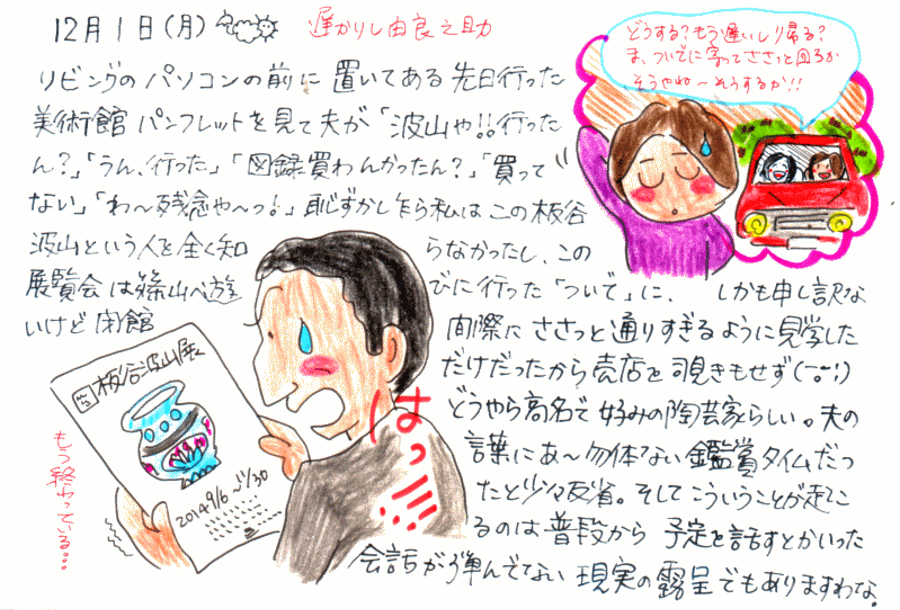 12月1日(月)
遅かりし由良之助
どうする?もう遅いし帰る?
ま、ついでに寄ってささっと回ろか
そうやねーそうするか!!
リビングのパソコンの前に置いてある先日行った
美術館パンフレットを見て夫が「波山や!!行った
ん?」「うん、行った」「図録買わんかったん?」「買って
ない」「わ〜残念や〜っ!」恥ずかし乍ら私はこの板谷
波山という人を全く知らなかったし、この
展覧会は篠山へ遊びに行った「ついで」に、しかも申し訳な
いけど閉館間際にささっと通りすぎるように見学した
だけだったから売店を覗きもせず(ーー;)
どうやら高名で好みの陶芸家らしい。夫の
言葉にあ〜勿体ない鑑賞タイムだっ
たと少々反省。そしてこういうことが起こ
るのは普段から予定を話すとかいった
会話が弾んでない現実の露呈でもありますわな。
板谷波山展
2014 9/6〜11/30
もう終わっている....
はっ!!!